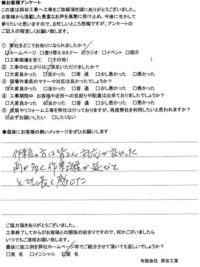 ■お客様アンケート
この度は西谷工業へ工事をご依頼頂き誠にありがとうございました。
お客様から頂戴した貴重なお声を真摯に受け止め、今後に生かして
参りたいと思いますので、お忙しいところ恐縮ですが、アンケートの
ご記入の程宜しくお願い致します。
① 弊社をどこでお知りになられましたか?
□ホームページ □折り込みチラシ □ラジオ □イベント □紹介
□工事現場を見て □その他( )
② 工事の仕上がりはご満足いただけましたか?
□大変良かった □良かった □普通 □少し悪かった □悪かった
□大変良かった □良かった □普通 □少し悪かった □悪かった
□大変良かった □良かった □普通 □少し悪かった □悪かった
□必ずお願いしたい □したくない
●最後にお客様の熱いメッセージをぜひお願いします
作業員の方は皆さん対応が良かった
雨が多く作業工程が延びて
とても長く感じた
ご協力頂きありがとうございました。
工事終了してからがお客様との関係の始まりですので、何かございましたら
いつでもご連絡お願い致します。
最後に感想を弊社ホームページ等でご紹介させて頂いても宜しいですか?
□実名 □イニシャル □匿名
有限会社 西谷工業